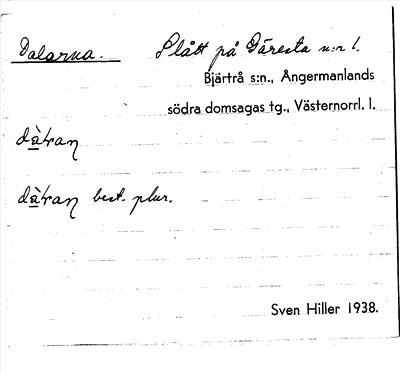 Dalarna. Slått på Gåresta n:r 1.
Bjärtrå s:n., Ångermanlands
södra domsagas tg., Västernorrl. l.
best. plur.
Sven Hiller 1938.